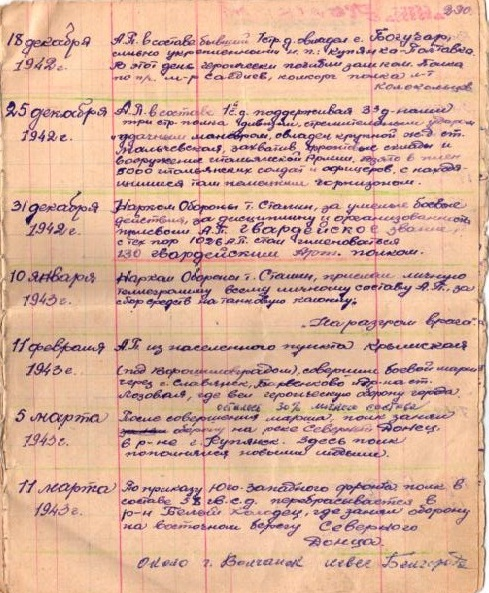 230.
18 декабря А.П. в составе бывшей 1 стр.д. овладел с. Богучар,
1942 г. сильно укрепленными н.п.: Купянка-Полтавка.
В этот день героически погибли зам. ком. полка
по пр. м-р Сабаев, комсорг полка л-т
Колокольцов.
25 декабря А.П. в составе 1 с.д. поддерживая 33 д. нашими
1942 г. тремя стр. полка дивизии, стремительным ударом
и удачным маневром, овладел крупной ж.д. ст.
Мальчевская, захватив фронтовые склады и
вооружение итальянской Армии, взято в плен
5000 итальянских солдат и офицеров, с находя-
вшимися там немецким гарнизоном.
31 декабря Нарком Обороны т. Сталин, за умелые боевые
1942 г. действия, за дисциплину и организованность
присвоил А.П. гвардейское звание,
с тех пор 1026 А.П. стал именоваться
130 гвардейским Арт. полком.
10 января Нарком Обороны т. Сталин, прислал личную
1943 г. телеграмму всему личному составу А.П., за
сбор средств на танковую колонну,
"На разгром врага".
11 февраля А.П. из населенного пункта Крымская
1943 г. (под Ворошиловградом), совершил боевой марш
через г. Славянск, Барвенково и др. на ст.
Лозовая, где вел героическую оборону города
осталось 30% личного состава
5 марта После совершения марша полк занял
1943 г. оборону на реке Северный Донец
в р-не г. Купянск. Здесь полк
пополнялся новыми людьми.
11 марта По приказу Юго-западного фронта полк в
1943 г. составе 38 гв. с.д. перебрасывается в
р-н Белый Колодец, где занял оборону
на восточном берегу Северского
Донца.
Около г. Волчанск левее Белгорода